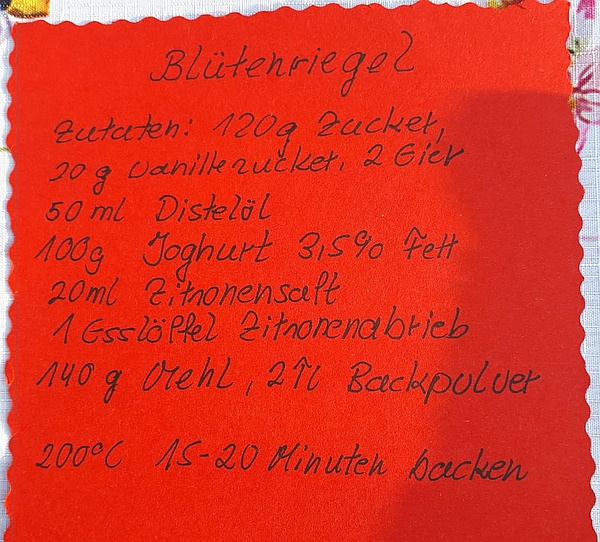 Blütenriegel
Zutaten: 120g Zucker,
20 g Vanillezucker, 2 Eier
50 ml Distelöl
100g Joghurt 3,5% Fett
20ml Zitronensaft
1 Esslöffel Zitronenabrieb
140 g Mehl, 2Tl Backpulver
200°C 15-20 Minuten backen